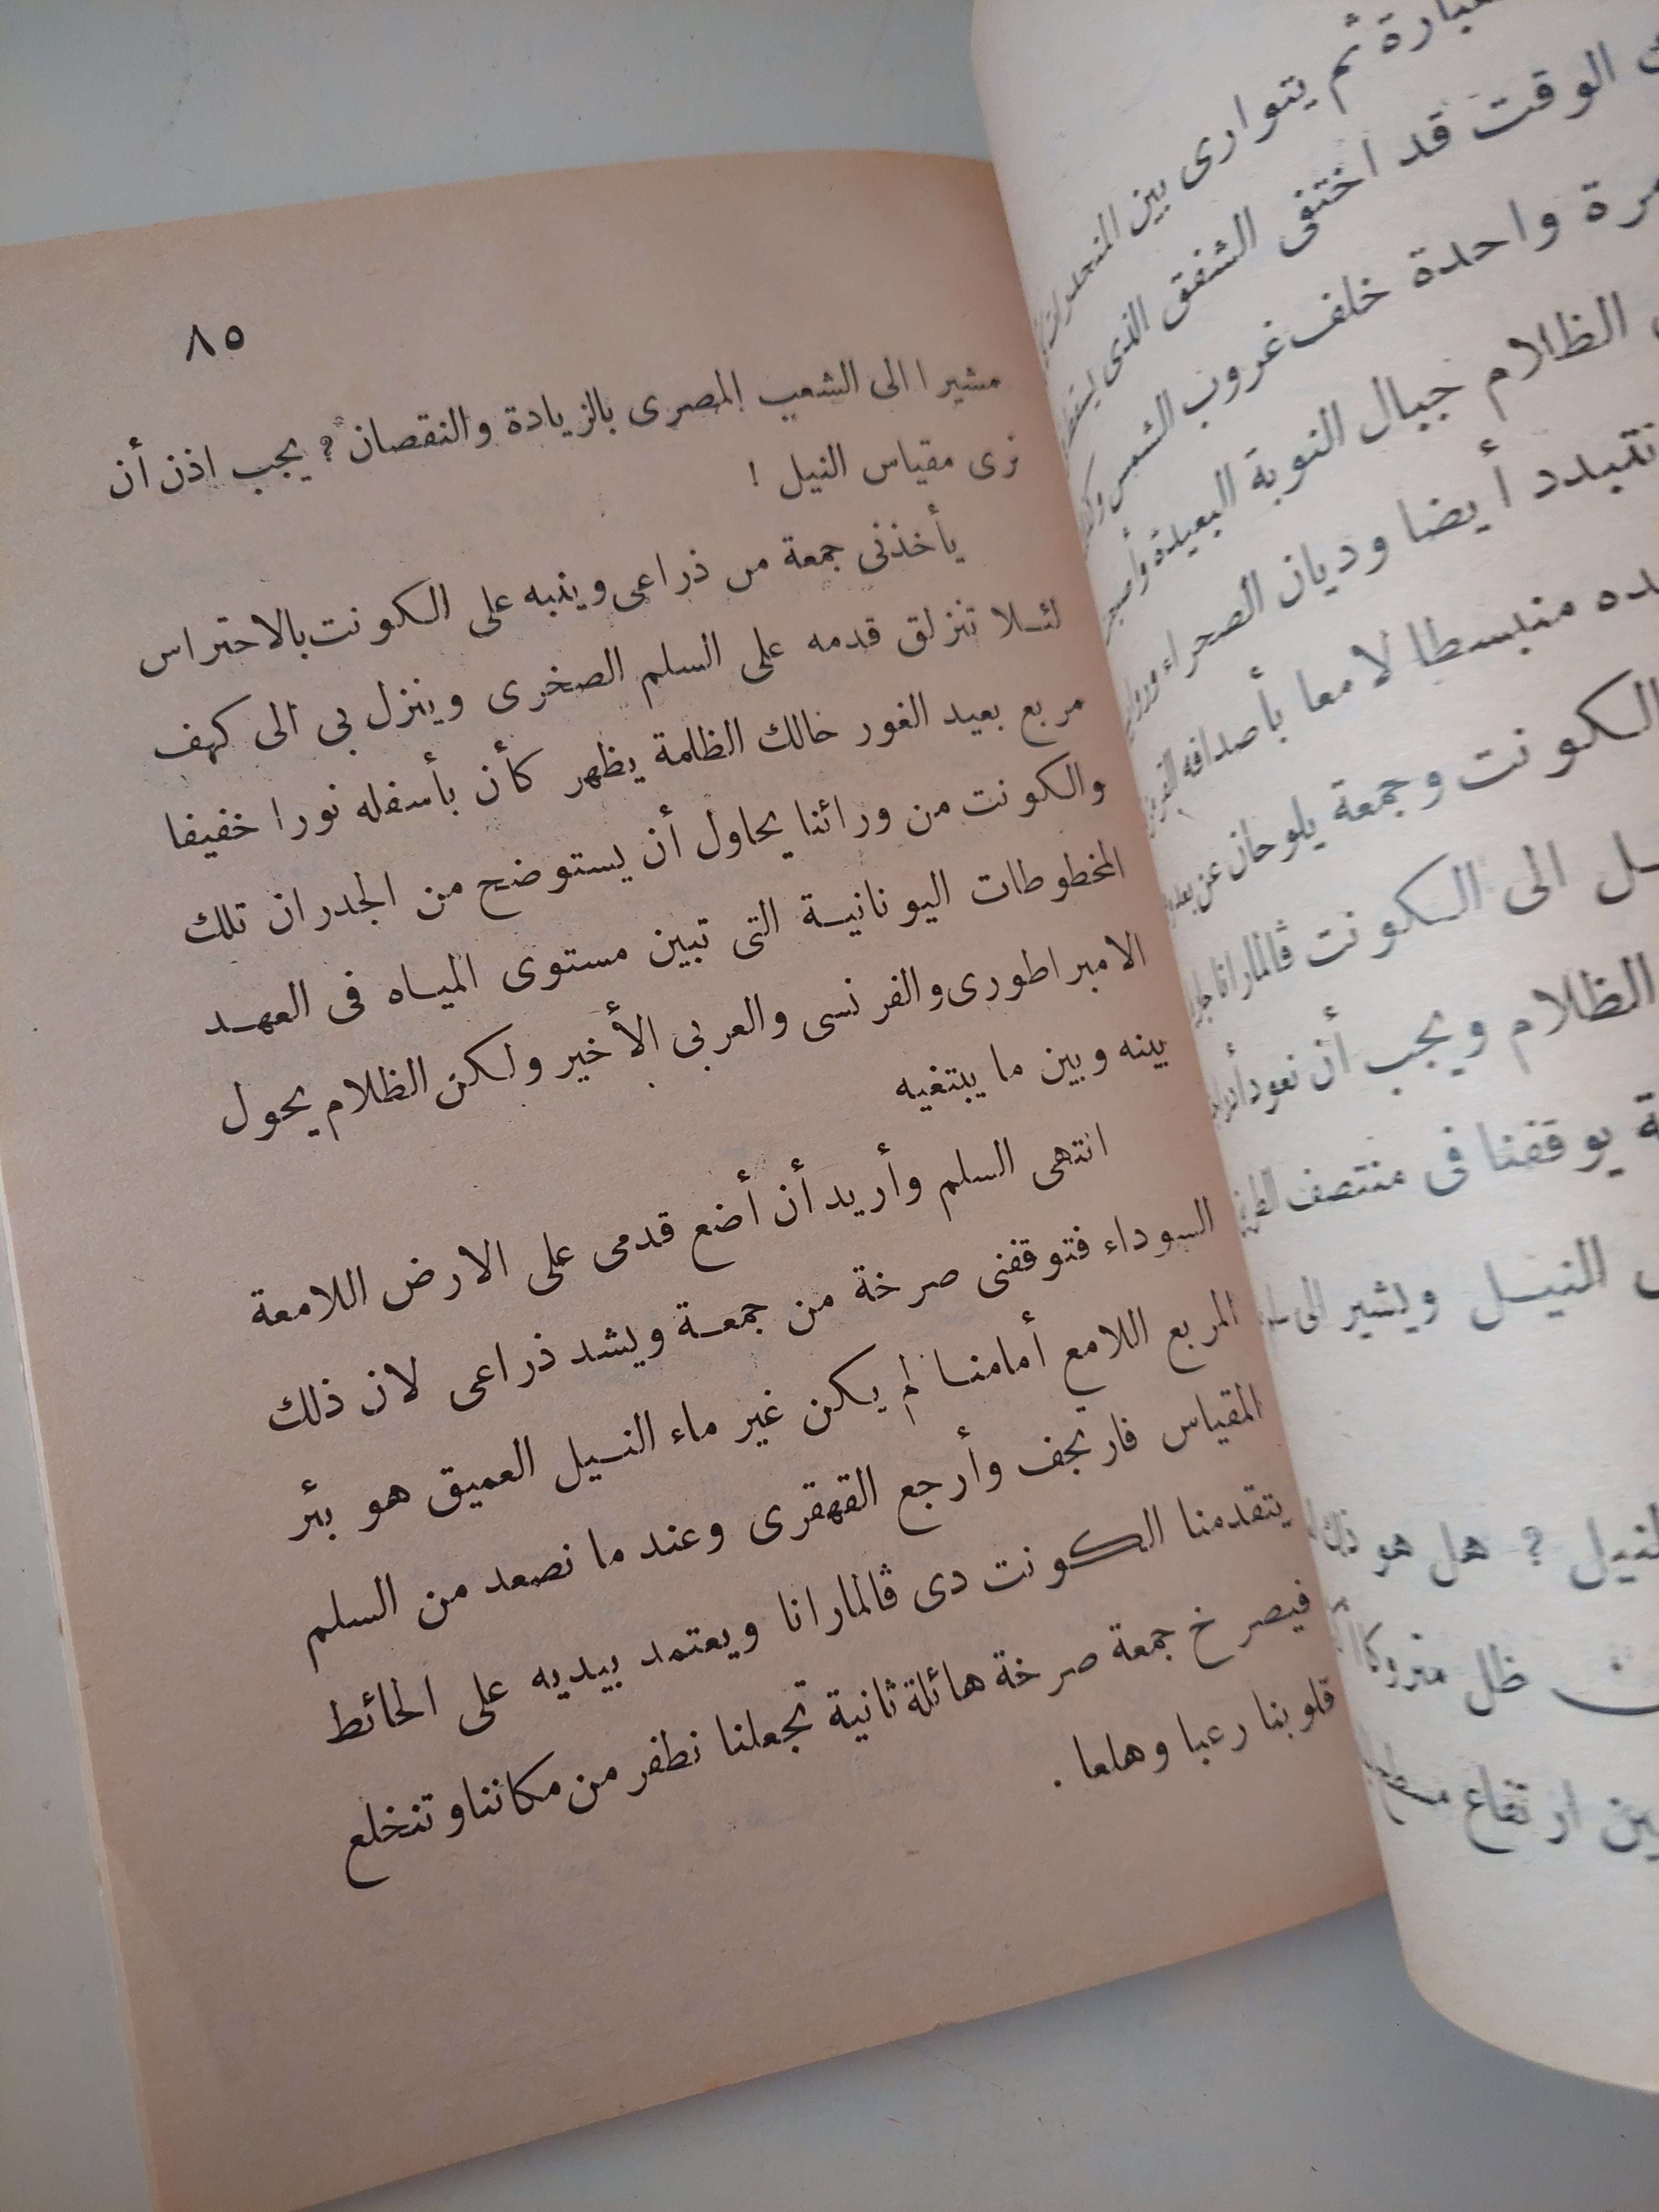 عبارة ثم يتوارى بين المنحدرات
الوقت قد اختفى الشفق الذى
مرة واحدة خلف غروب الشمس
الظلام جبال النوبة البعيدة
تتبدد أيضا وديان الصحراء
منبسطا لامعا بأصدافه
الكونت وجمعة يلوحان عن بعد
الى الكونت ڤالمارانا
الظلام ويجب أن نعود
يوقفنا فى منتصف
النيل ويشير الى
النيل ؟ هل هو
ظل متروكا
ارتفاع
٨٥
مشيرا الى الشعب المصرى بالزيادة والنقصان ؟ يجب اذن أن
نرى مقياس النيل !
يأخذنى جمعة من ذراعى وينبه على الكونت بالاحتراس
لئلا تنزلق قدمه على السلم الصخرى وينزل بى الى كهف
مربع بعيد الغور حالك الظلمة يظهر كأن بأسفله نورا خفيفا
والكونت من ورائنا يحاول أن يستوضح من الجدران تلك
المخطوطات اليونانية التى تبين مستوى المياه فى العهد
الامبراطورى والفرنسى والعربى الأخير ولكن الظلام يحول
بينه وبين ما يبتغيه
انتهى السلم وأريد أن أضع قدمى على الارض اللامعة
السوداء فتوقفنى صرخة من جمعة ويشد ذراعى لان ذلك
المربع اللامع أمامنا لم يكن غير ماء النيل العميق هو بئر
المقياس فارتجف وأرجع القهقرى وعند ما نصعد من السلم
يتقدمنا الكونت دى ڤالمارانا ويعتمد بيديه على الحائط
فيصرخ جمعة صرخة هائلة ثانية تجعلنا نطفر من مكاننا وتنخلع
قلوبنا رعبا وهلعا .